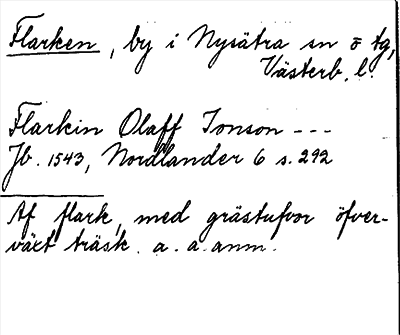 Flarken, by i Nysätra sn o tg,
Västerb. l.
Flarkin Olaff Jonson ---
Jb. 1543, Nordlander 6 s. 292
Af flark, med grästufvor öfver-
växt träsk. a. a. anm.